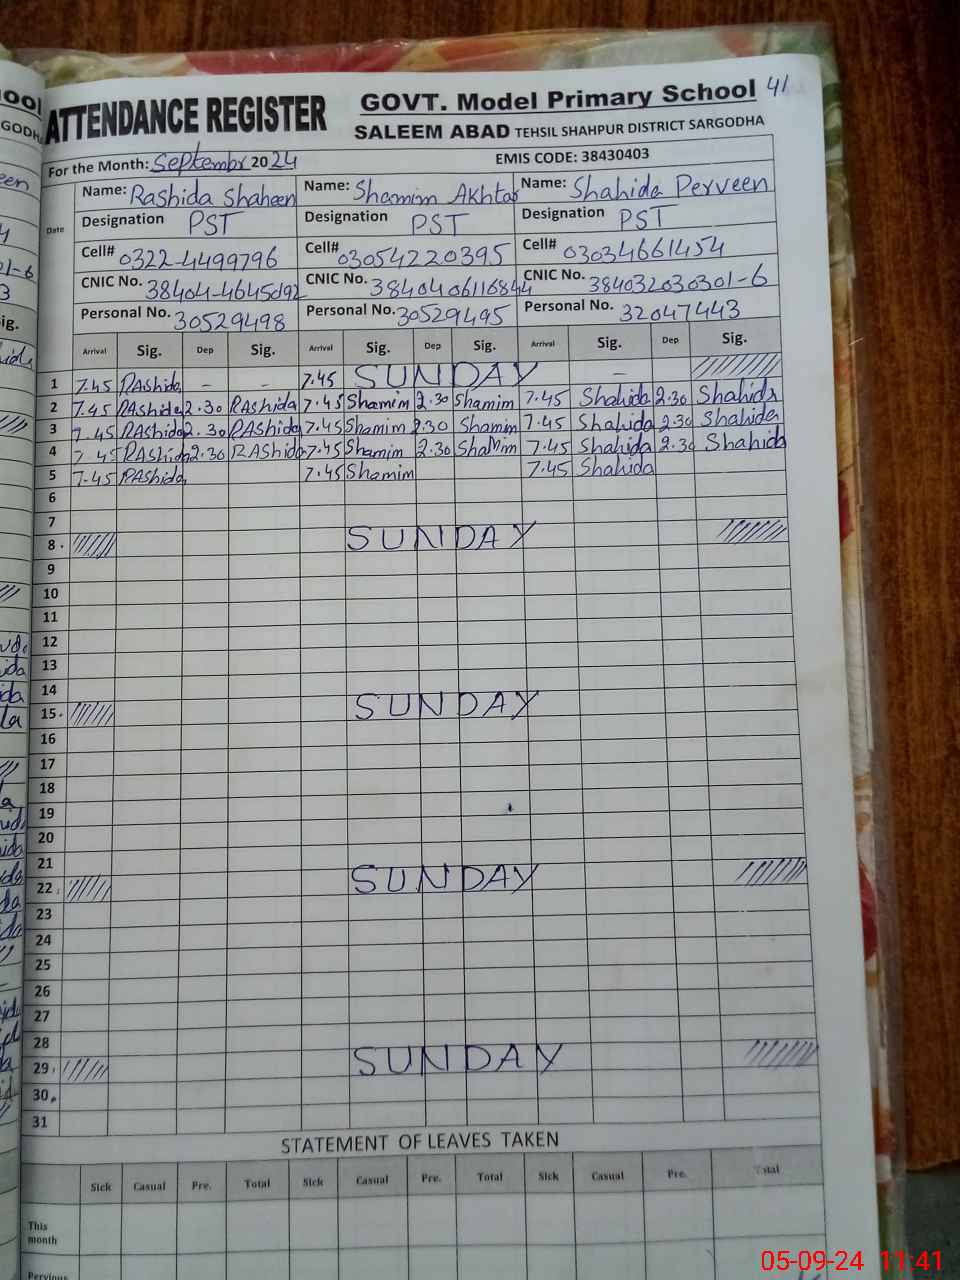 41
ATTENDANCE REGISTER GOVT. Model Primary School
SALEEM ABAD TEHSIL SHAHPUR DISTRICT SARGODHA
For the Month: Septembr 2024 EMIS CODE: 38430403
Date Name: Rashida Shaheen Name: Shamim Akhtar Name: Shahida Perveen
Designation PST Designation PST Designation PST
Cell# 0322-4499796 Cell# 03054220395 Cell# 03034661454
CNIC No. 38404-4645092 CNIC No. 3840406116844 CNIC No. 384032030301-6
Personal No. 30529498 Personal No. 30529495 Personal No. 32047443
Arrival Sig. Dep Sig. Arrival Sig. Dep Sig. Arrival Sig. Dep Sig.
1 7.45 RAshida - - 7.45 SUNDAY -
2 7.45 RAshida 2.30 RAshida 7.45 Shamim 2.30 Shamim 7.45 Shahida 2.30 Shahida
3 7.45 RAshida 2.30 RAshida 7.45 Shamim 2.30 Shamim 7.45 Shahida 2.30 Shahida
4 7.45 RAshida 2.30 RAshida 7.45 Shamim 2.30 ShaMim 7.45 Shahida 2.30 Shahida
5 7.45 RAshida 7.45 Shamim 7.45 Shahida
6
7
8 SUNDAY
9
10
11
12
13
14
15 SUNDAY
16
17
18
19
20
21
22 SUNDAY
23
24
25
26
27
28
29 SUNDAY
30
31
STATEMENT OF LEAVES TAKEN
Sick Casual Pre. Total Sick Casual Pre. Total Sick Casual Pre. Total
This month
Pervious
05-09-24 11:41